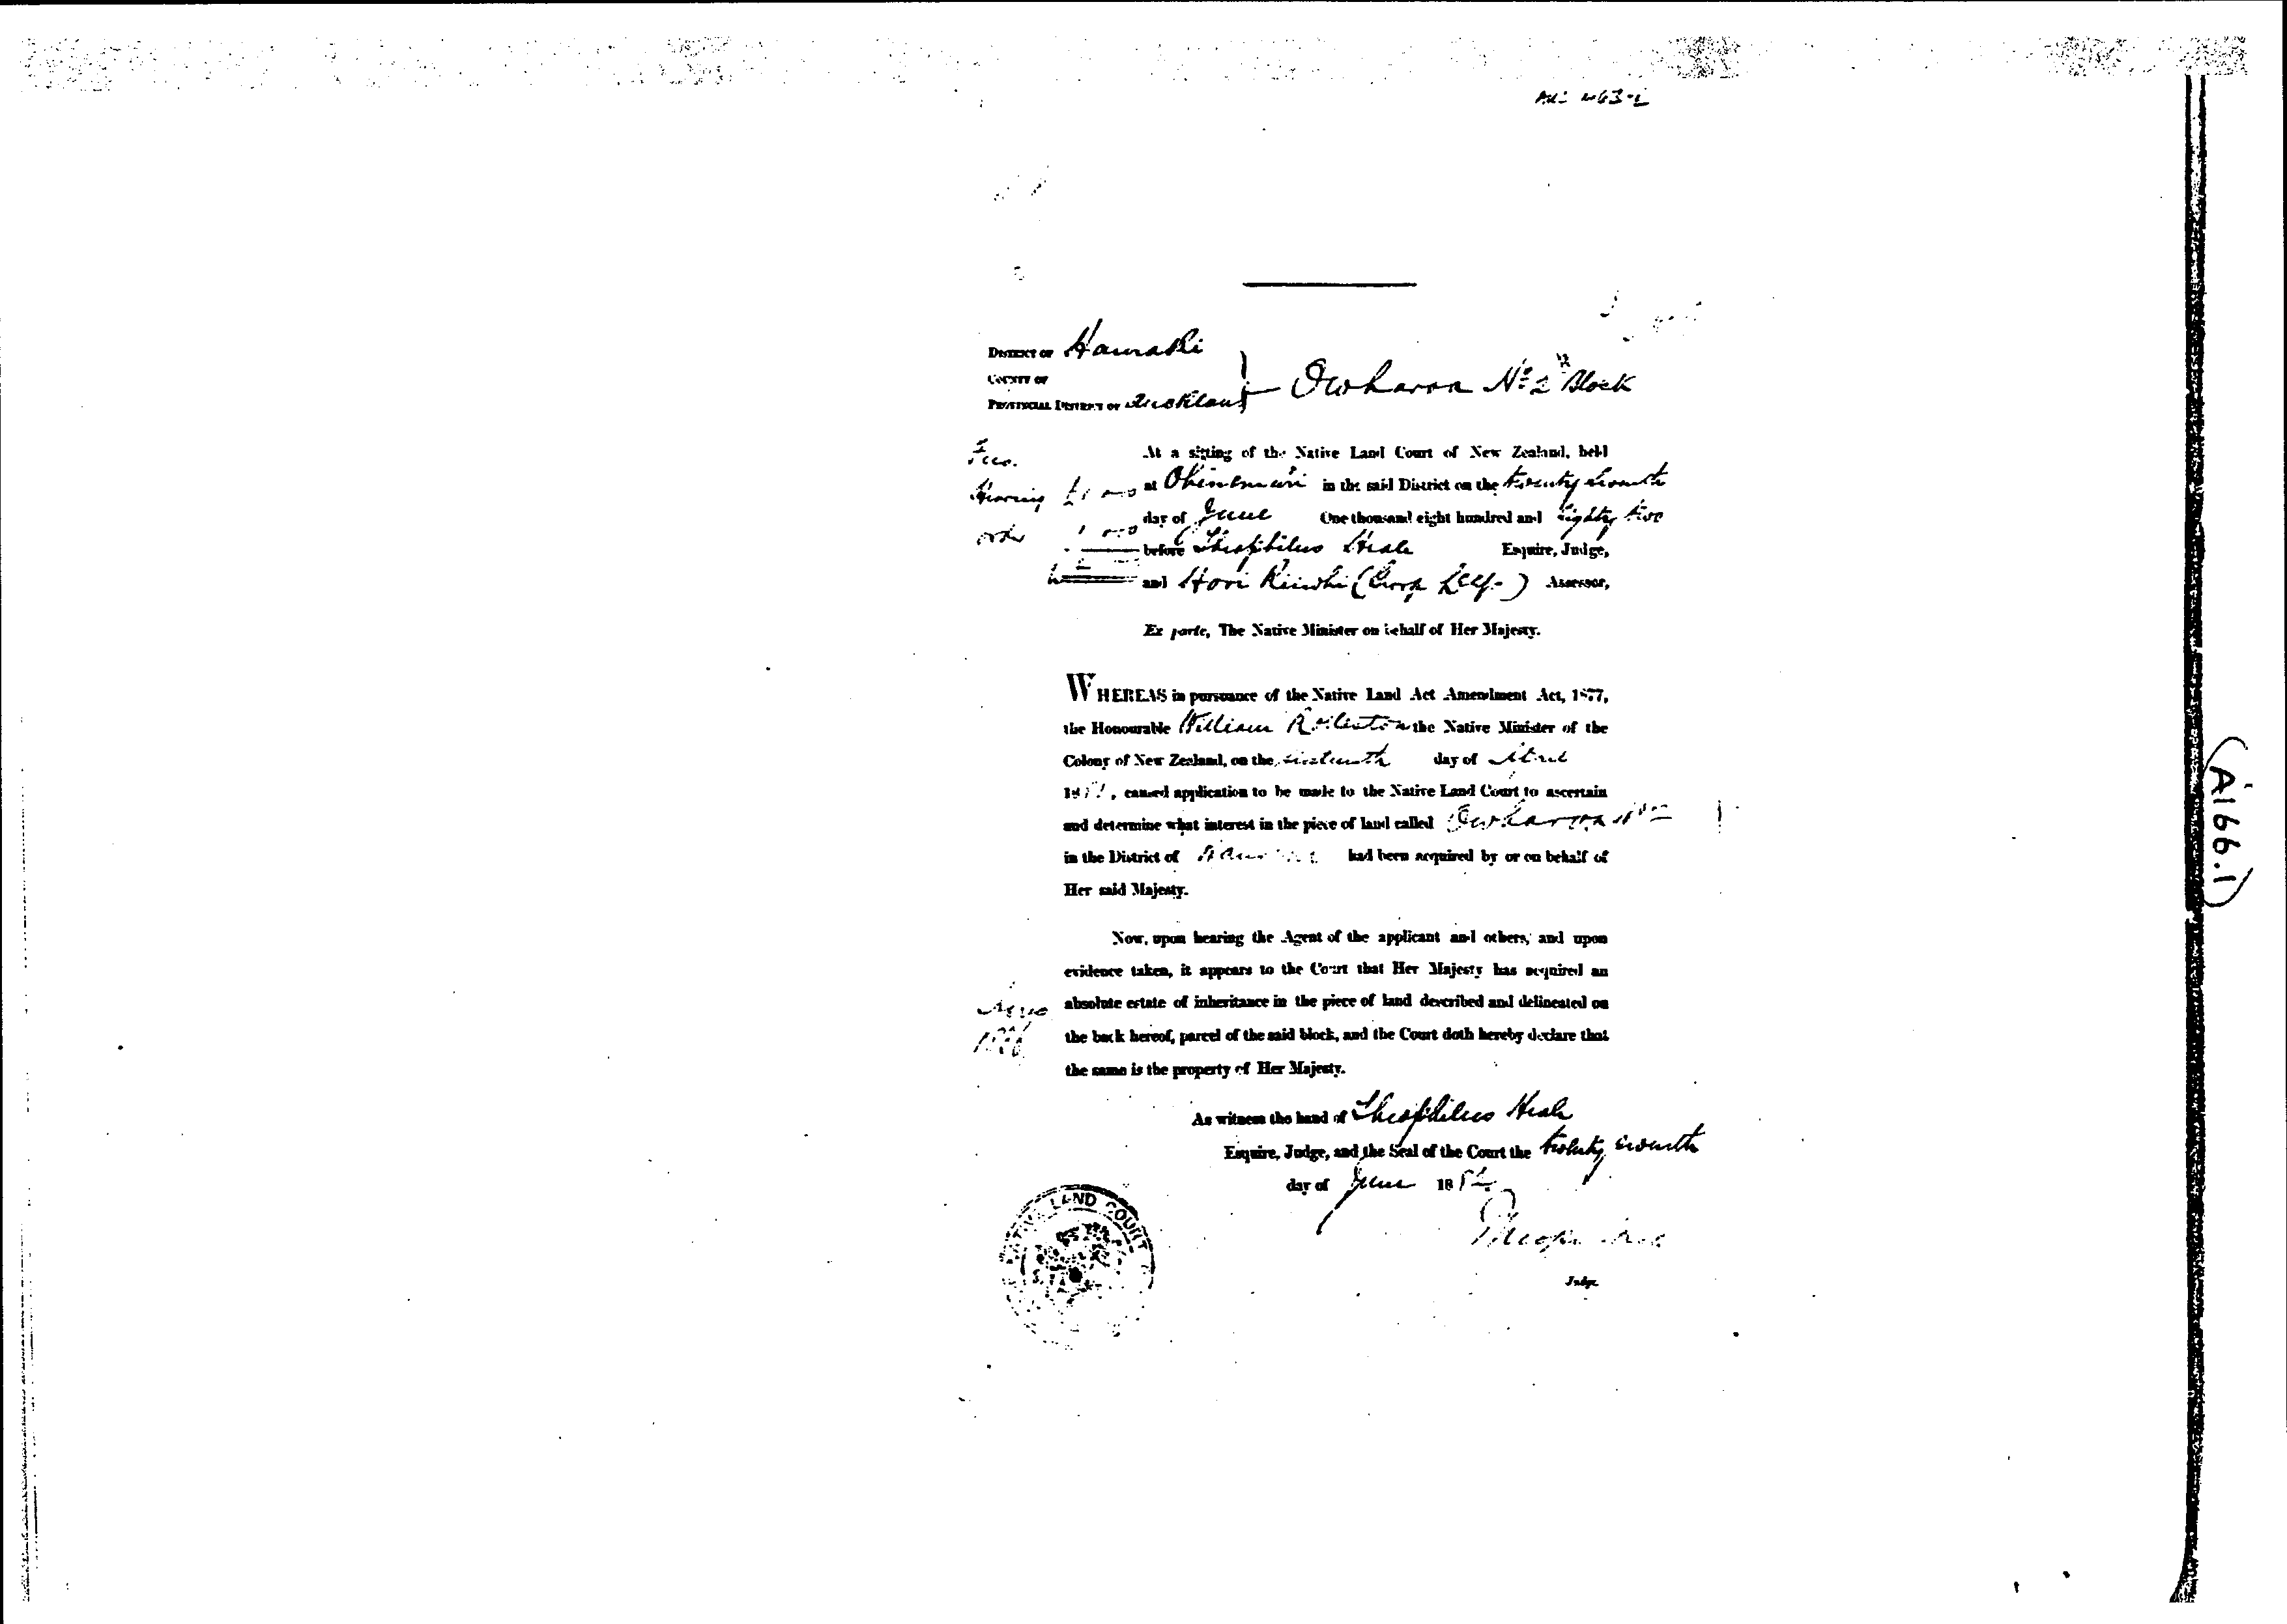 DISTRICT OF Hauraki
COUNTY OF
PROVINCIAL DISTRICT OF Auckland
Owharoa No 2 Block
Fees.
Hearing £1
order 1
At a sitting of the Native Land Court of New Zealand, held
at Ohinemuri in the said District on the twenty seventh
day of June One thousand eight hundred and eighty two
before Theophilus Heale Esquire, Judge,
and Hori Assessor,
Ex parte, The Native Minister on behalf of Her Majesty.
WHEREAS in pursuance of the Native Land Act Amendment Act, 1877,
the Honourable William Rolleston the Native Minister of the
Colony of New Zealand, on the day of
18 , caused application to be made to the Native Land Court to ascertain
and determine what interest in the piece of land called Owharoa
in the District of Hauraki had been acquired by or on behalf of
Her said Majesty.
Now, upon hearing the Agent of the applicant and others, and upon
evidence taken, it appears to the Court that Her Majesty has acquired an
absolute estate of inheritance in the piece of land described and delineated on
the back hereof, parcel of the said block, and the Court doth hereby declare that
the same is the property of Her Majesty.
As witness the hand of Theophilus Heale
Esquire, Judge, and the Seal of the Court the twenty seventh
day of June 1882
Judge.
NATIVE LAND COURT
(A166.1)